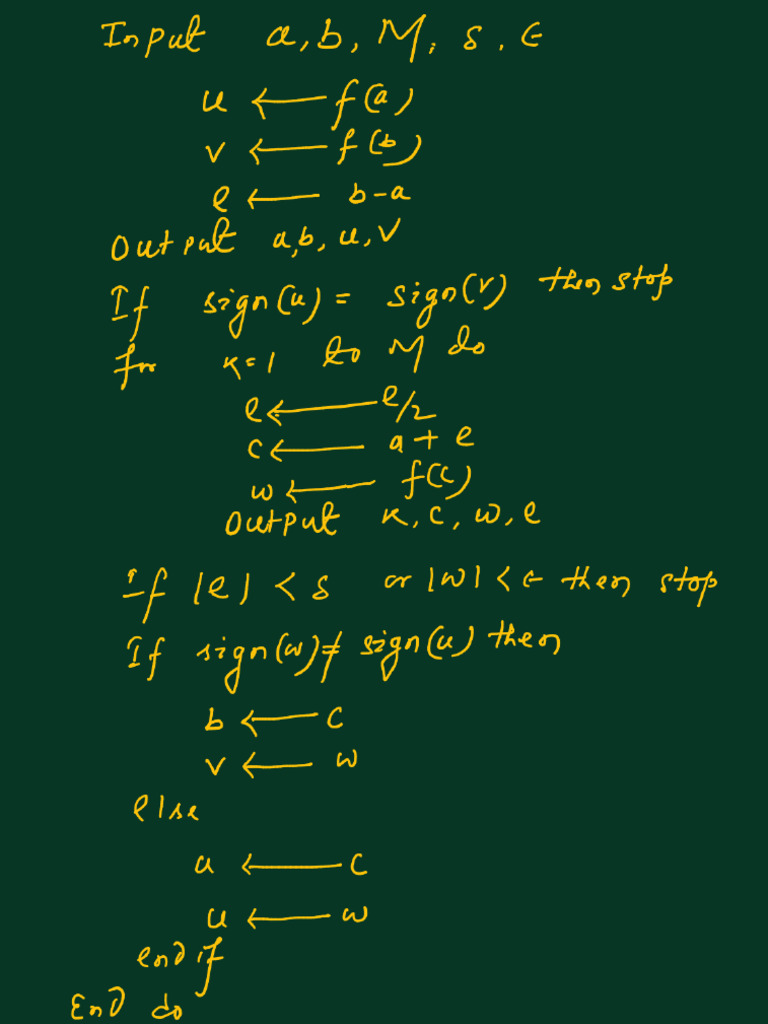 Input a, b, M, δ, ε
u ← f(a)
v ← f(b)
e ← b-a
Output a,b, u,v
If sign(u) = sign(v) then stop
for k=1 to M do
e ← e/2
c ← a + e
w ← f(c)
Output k, c, w, e
If |e| < δ or |w| < ε then stop
If sign(w) ≠ sign(u) then
b ← c
v ← w
else
a ← c
u ← w
end if
End do